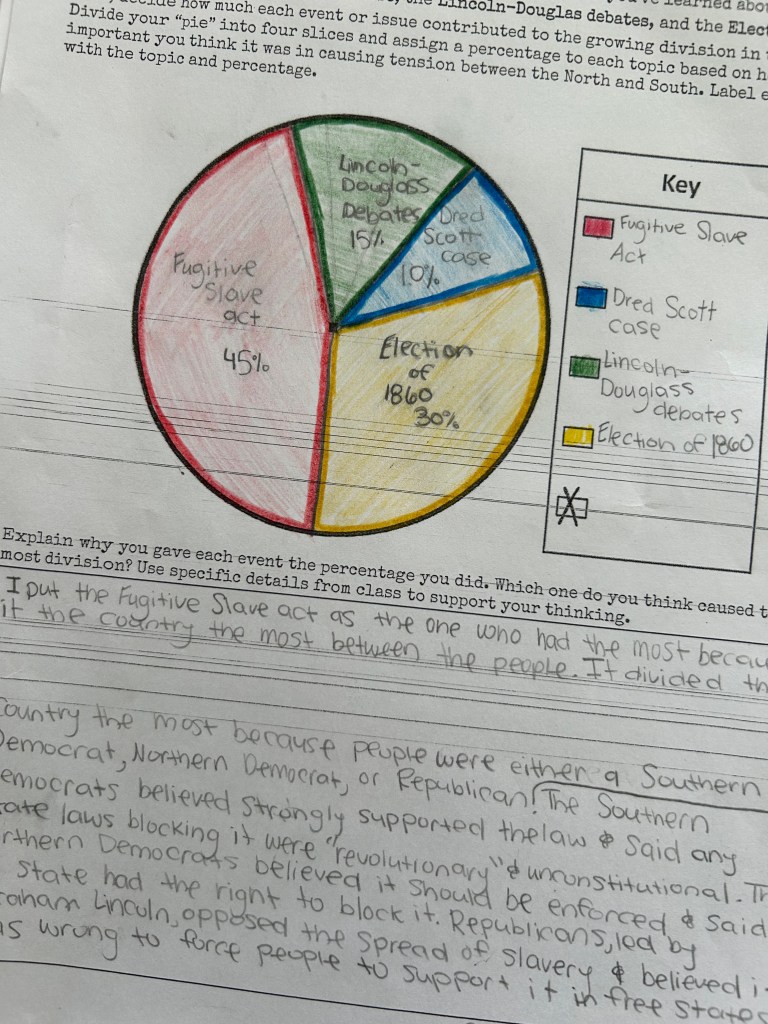 how much each event or issue contributed to the growing division in
Lincoln-Douglas debates, and the Elect
Divide your "pie" into four slices and assign a percentage to each topic based on h
important you think it was in causing tension between the North and South. Label e
with the topic and percentage.
Lincoln-
Douglass
Debates
15%
Dred
Scott
case
10%
Fugitive
Slave
act
45%
Election
of
1860
30%
Key
Fugitive Slave
Act
Dred Scott
case
Lincoln-
Douglass
debates
Election of 1860
Explain why you gave each event the percentage you did. Which one do you think caused t
most division? Use specific details from class to support your thinking.
I put the Fugitive Slave act as the one who had the most becau
it the country the most between the people. It divided th
Country the most because people were either a Southern
Democrat, Northern Democrat, or Republican. The Southern
emocrats believed strongly supported the law & said any
ate laws blocking it were "revolutionary" & unconstitutional. Th
rthern Democrats believed it should be enforced & said
State had the right to block it. Republicans, led by
raham Lincoln, opposed the spread of slavery & believed i
as wrong to force people to support it in free states